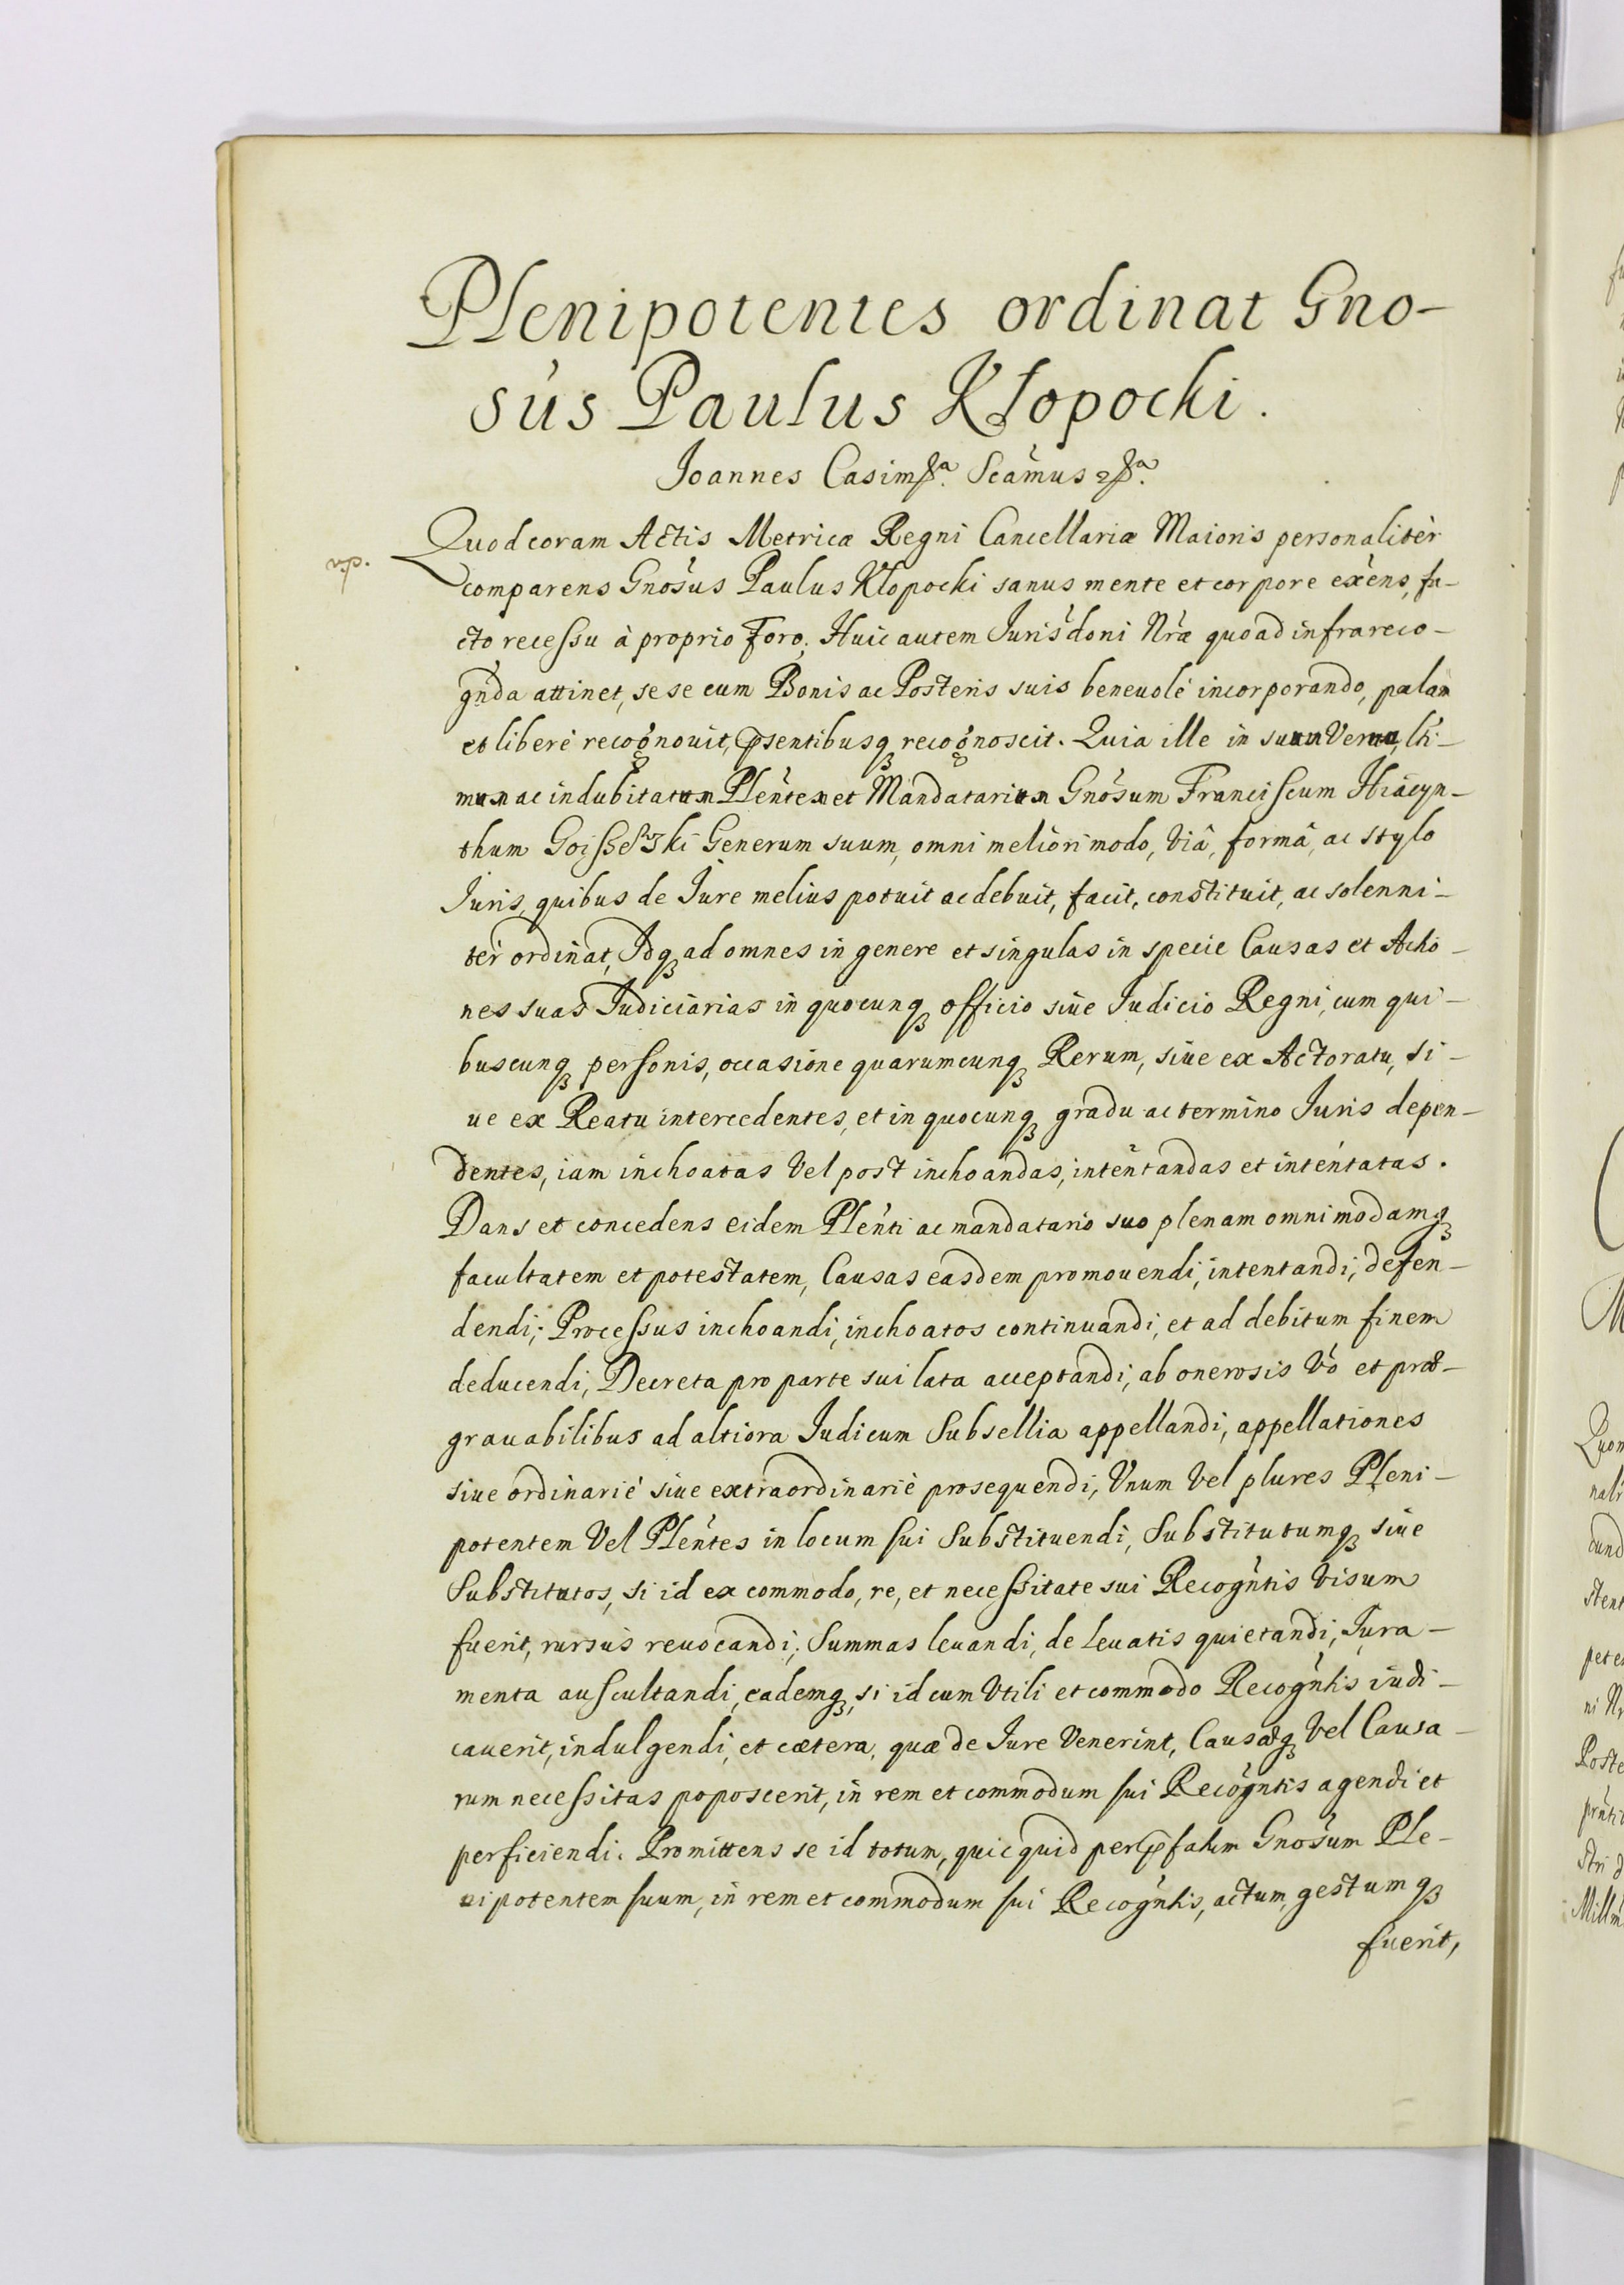 Plenipotentes ordinat Gno-
sús Paulus Kłopocki.
Joannes Casim Scámus
Quod coram Actis Metricæ Regni Cancellariæ Maioris personalitèr
vp.
comparens Gnósus Paulus Kłopocki sanus mente et corpore exèns, fa-
cto recessu à proprio Foro; Huic autem Juris'doni Nræ quoad infrareco-
gnda attinet, sese cum Bonis ac Posteris suis beneuolè incorporando, palam
et liberè recognouit, psentibusq recognoscit. Quia ille in suum Verum, lti-
mum ac indubitatum Plèntem et Mandatarium Gnósum Franciscum Hiacyn-
thum Generum suum, omni meliori modo, viâ, formâ, ac stylo
Juris, quibus de Jure melius potuit ac debuit, facit, constituit, ac solenni-
tèr ordinat, Idq ad omnes in genere et singulas in specie Causas et Actio-
nes suas Judiciarias in quocunq officio siue Judicio Regni, cum qui-
buscunq personis, occasione quarumcunq Rerum, siue ex Actoratu, si-
ue ex Reatu intercedentes, et in quocunq gradu ac termino Juris depen-
dentes, iam inchoatas Vel post inchoandas, intentandas et intentatas.
Dans et concedens eidem Plènti ac mandatario suo plenam omnimodamq
facultatem et potestatem, Causas easdem promouendi, intentandi, defen-
dendi; Processus inchoandi, inchoatos continuandi, et ad debitum finem
deducendi, Decreta pro parte sui lata acceptandi, ab onerosis Vò et præ-
grauabilibus ad altiora Judicum Subsellia appellandi, appellationes
siue ordinariè siue extraordinariè prosequendi, Vnum Vel plures Pleni-
potentem Vel Plèntes in locum sui Substituendi, Substitutumq siue
Substitutos, si id ex commodo, re, et necessitate sui Recogntis Visum
fuerit, rursus reuocandi; Summas leuandi, de leuatis quietandi, Jura-
menta auscultandi, eademq, si id cum Vtili et commodo Recogntis iudi-
cauerit, indulgendi, et cætera, quæ de Jure Venerint, Causæq Vel Causa-
rum necessitas poposcerit, in rem et commodum sui Recogntis agendi et
perficiendi. Promittens se id totum, quicquid per pfatum Gnósum Ple-
nipotentem suum, in rem et commodum sui Recogntis, actum, gestumq
fuerit,